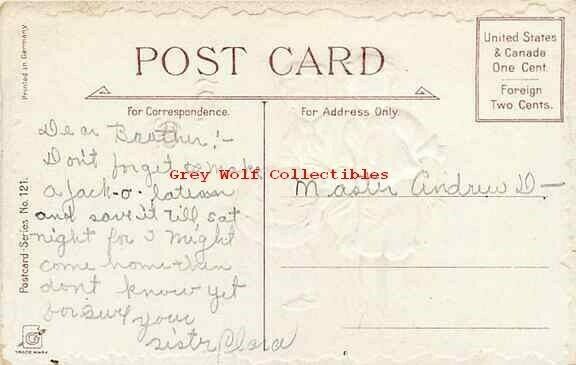 POST CARD
United States
& Canada
One Cent.
Foreign
Two Cents.
Printed in Germany
For Correspondence.
For Address Only.
Dear Brother:-
Don't forget to make
a Jack-o-latern
and save it till sat
night for I might
come home then
don't know yet
for sure
your
sistr Clara
Master Andrew D-
Grey Wolf Collectibles
Postcard-Series No. 121.
G
TRADE MARK